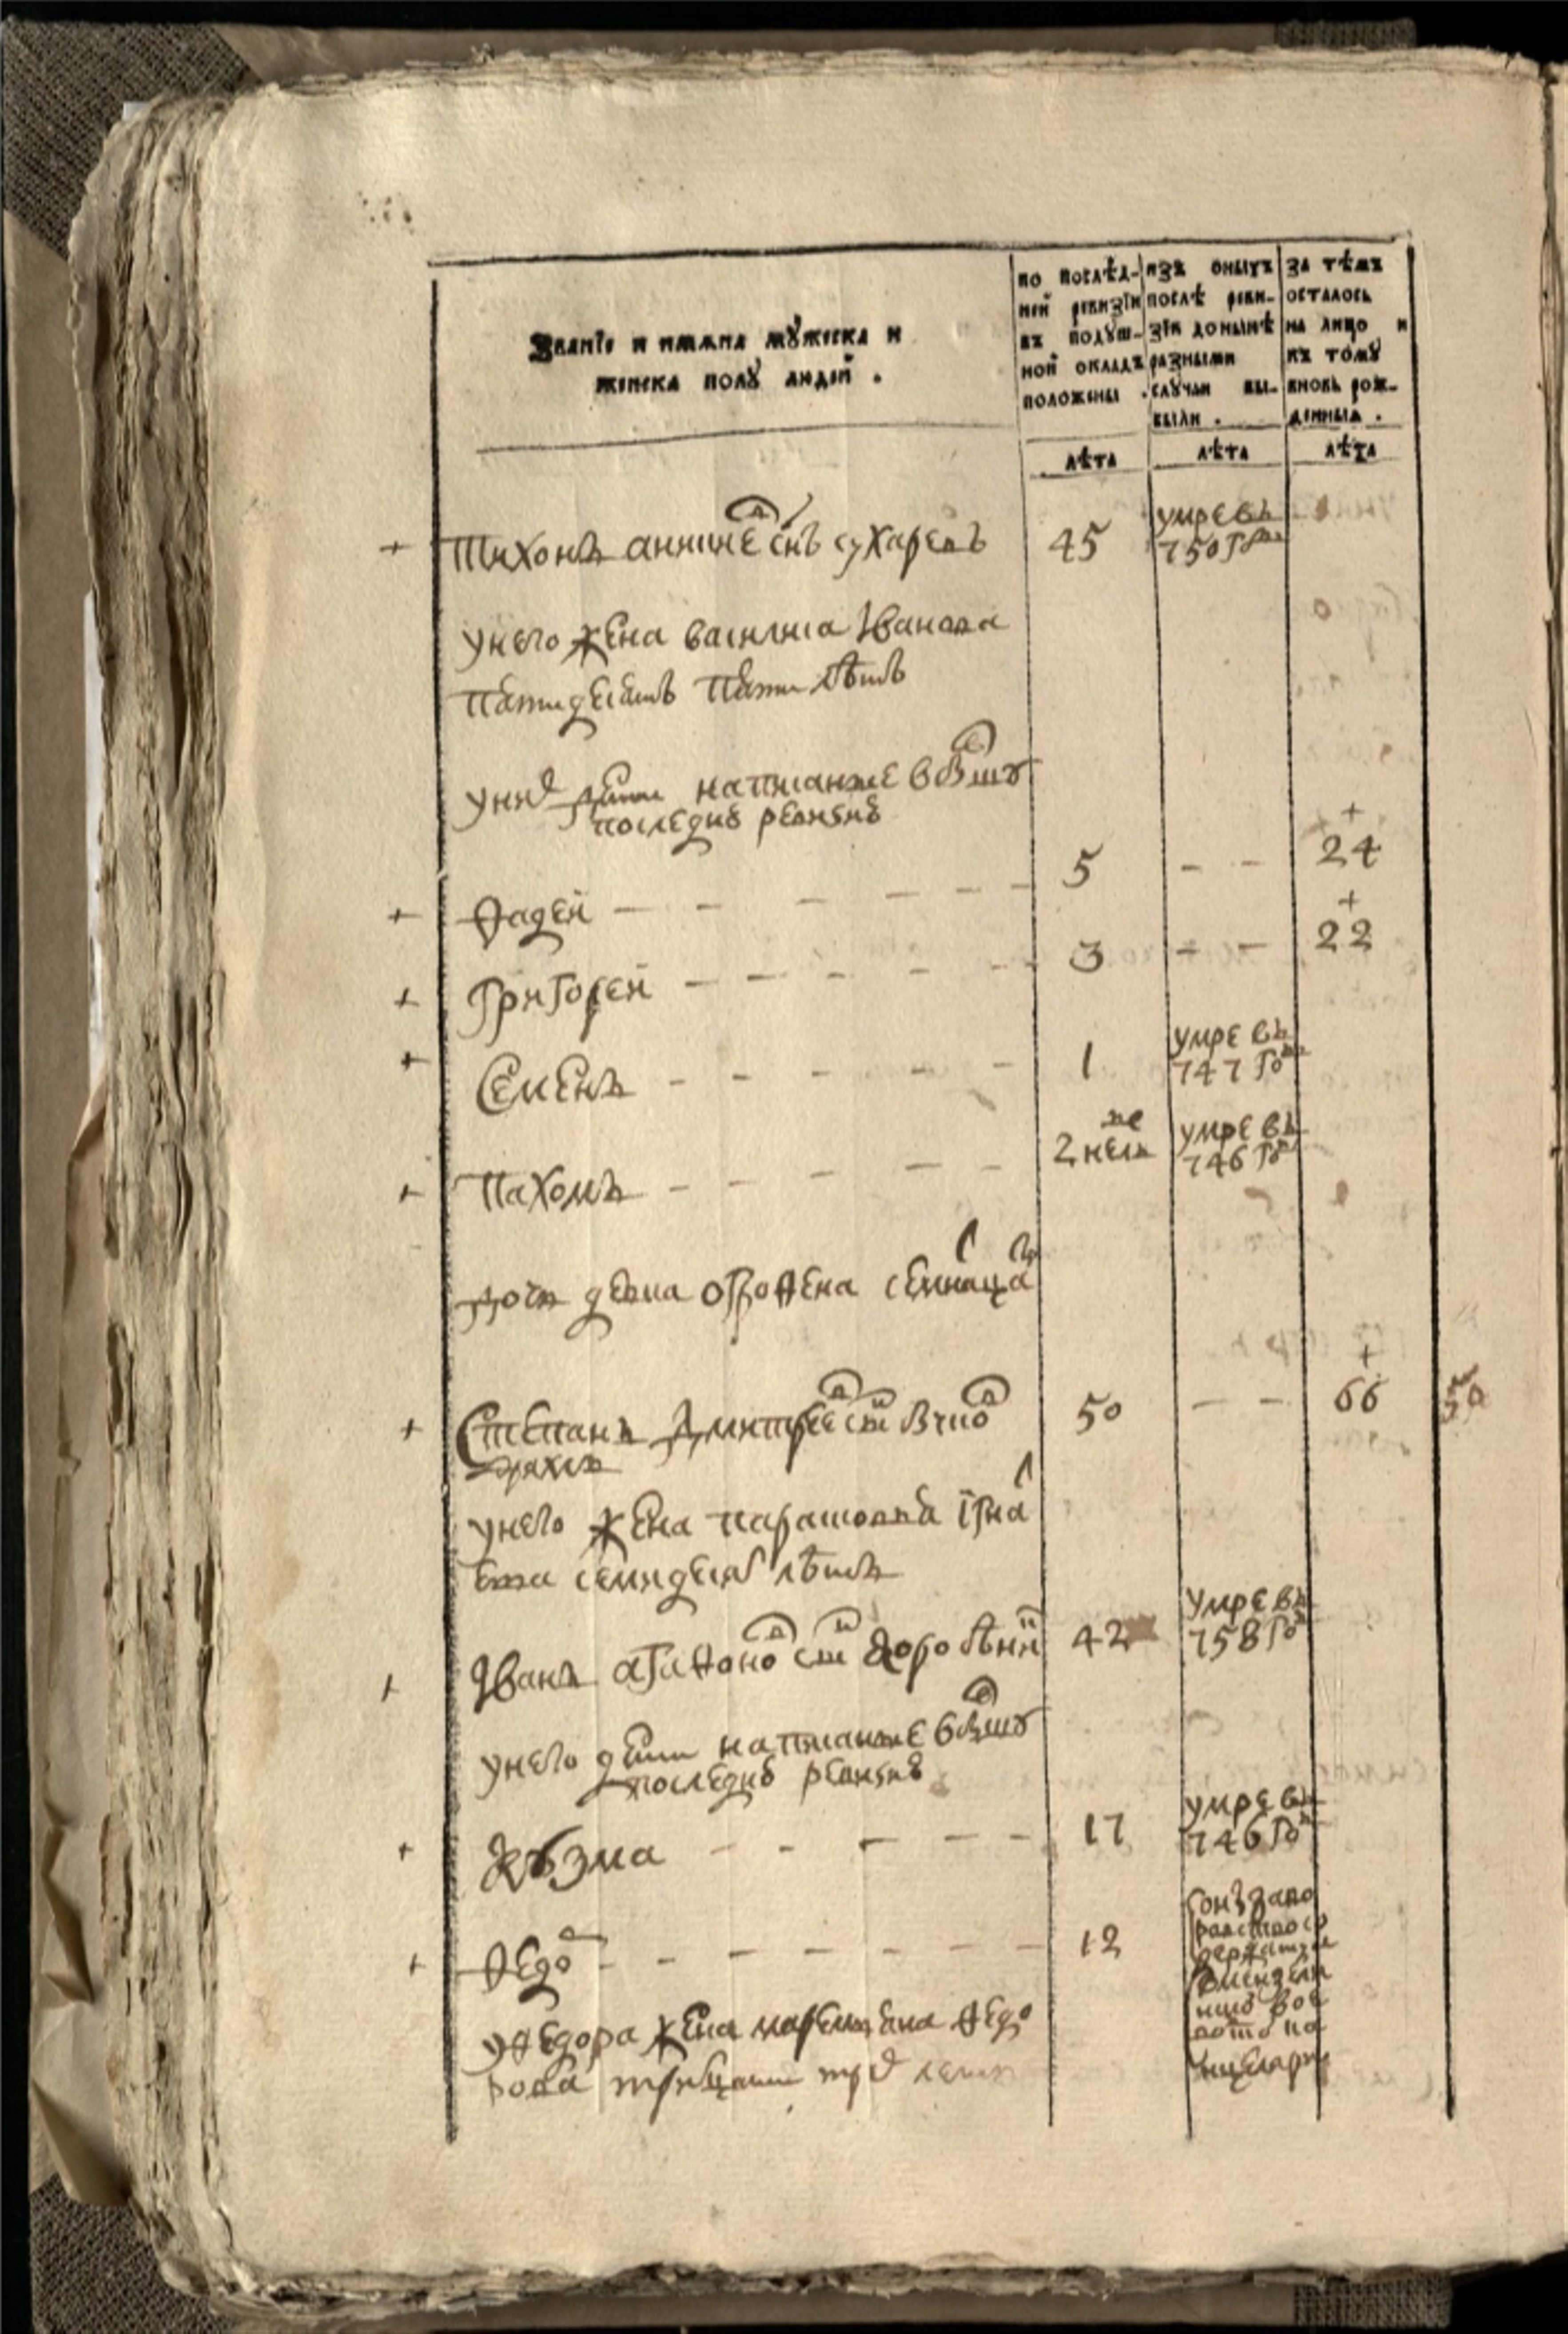 Званїе и имяна мужеска и
женска полу людей .
по послѣд-
ней ревизїи
въ подуш-
ной окладъ
положены .
изъ оныхъ
послѣ реви-
зїи донынѣ
разными
случаи вы-
были .
за тѣмъ
осталось
на лицо и
къ тому
вновь рож-
денныя .
лѣта
лѣта
лѣта
+ Тихонъ аникиевъ снъ сухаревъ 45
умре въ
750 году
у него жена василиса Иванова
пятидесятъ пяти лѣтъ
у них дети написанные в бывшую
последнюю ревизию
+ Фадей - - - - - - 5 - - + 24
+ Григорей - - - - - 3 - - + 22
+ Семенъ - - - - - 1
умре въ
747 году
+ Пахомъ - - - - 2 неде
умре въ
746 году
дочь девка огрофена семнацати
+ Степанъ Дмитреевъ снъ 50 - - + 66 50
дряхлъ
у него жена парасковья Игна
тева семидесят лѣтъ
+ Иванъ агафоновъ снъ 42
умре въ
758 году
у него дети написанные в бывшую
последнюю ревизию
+ Кузма - - - - - 17
умре въ
746 году
+ Федор - - - - - - - 12
у Федора жена Федо
рова трицати трех лет